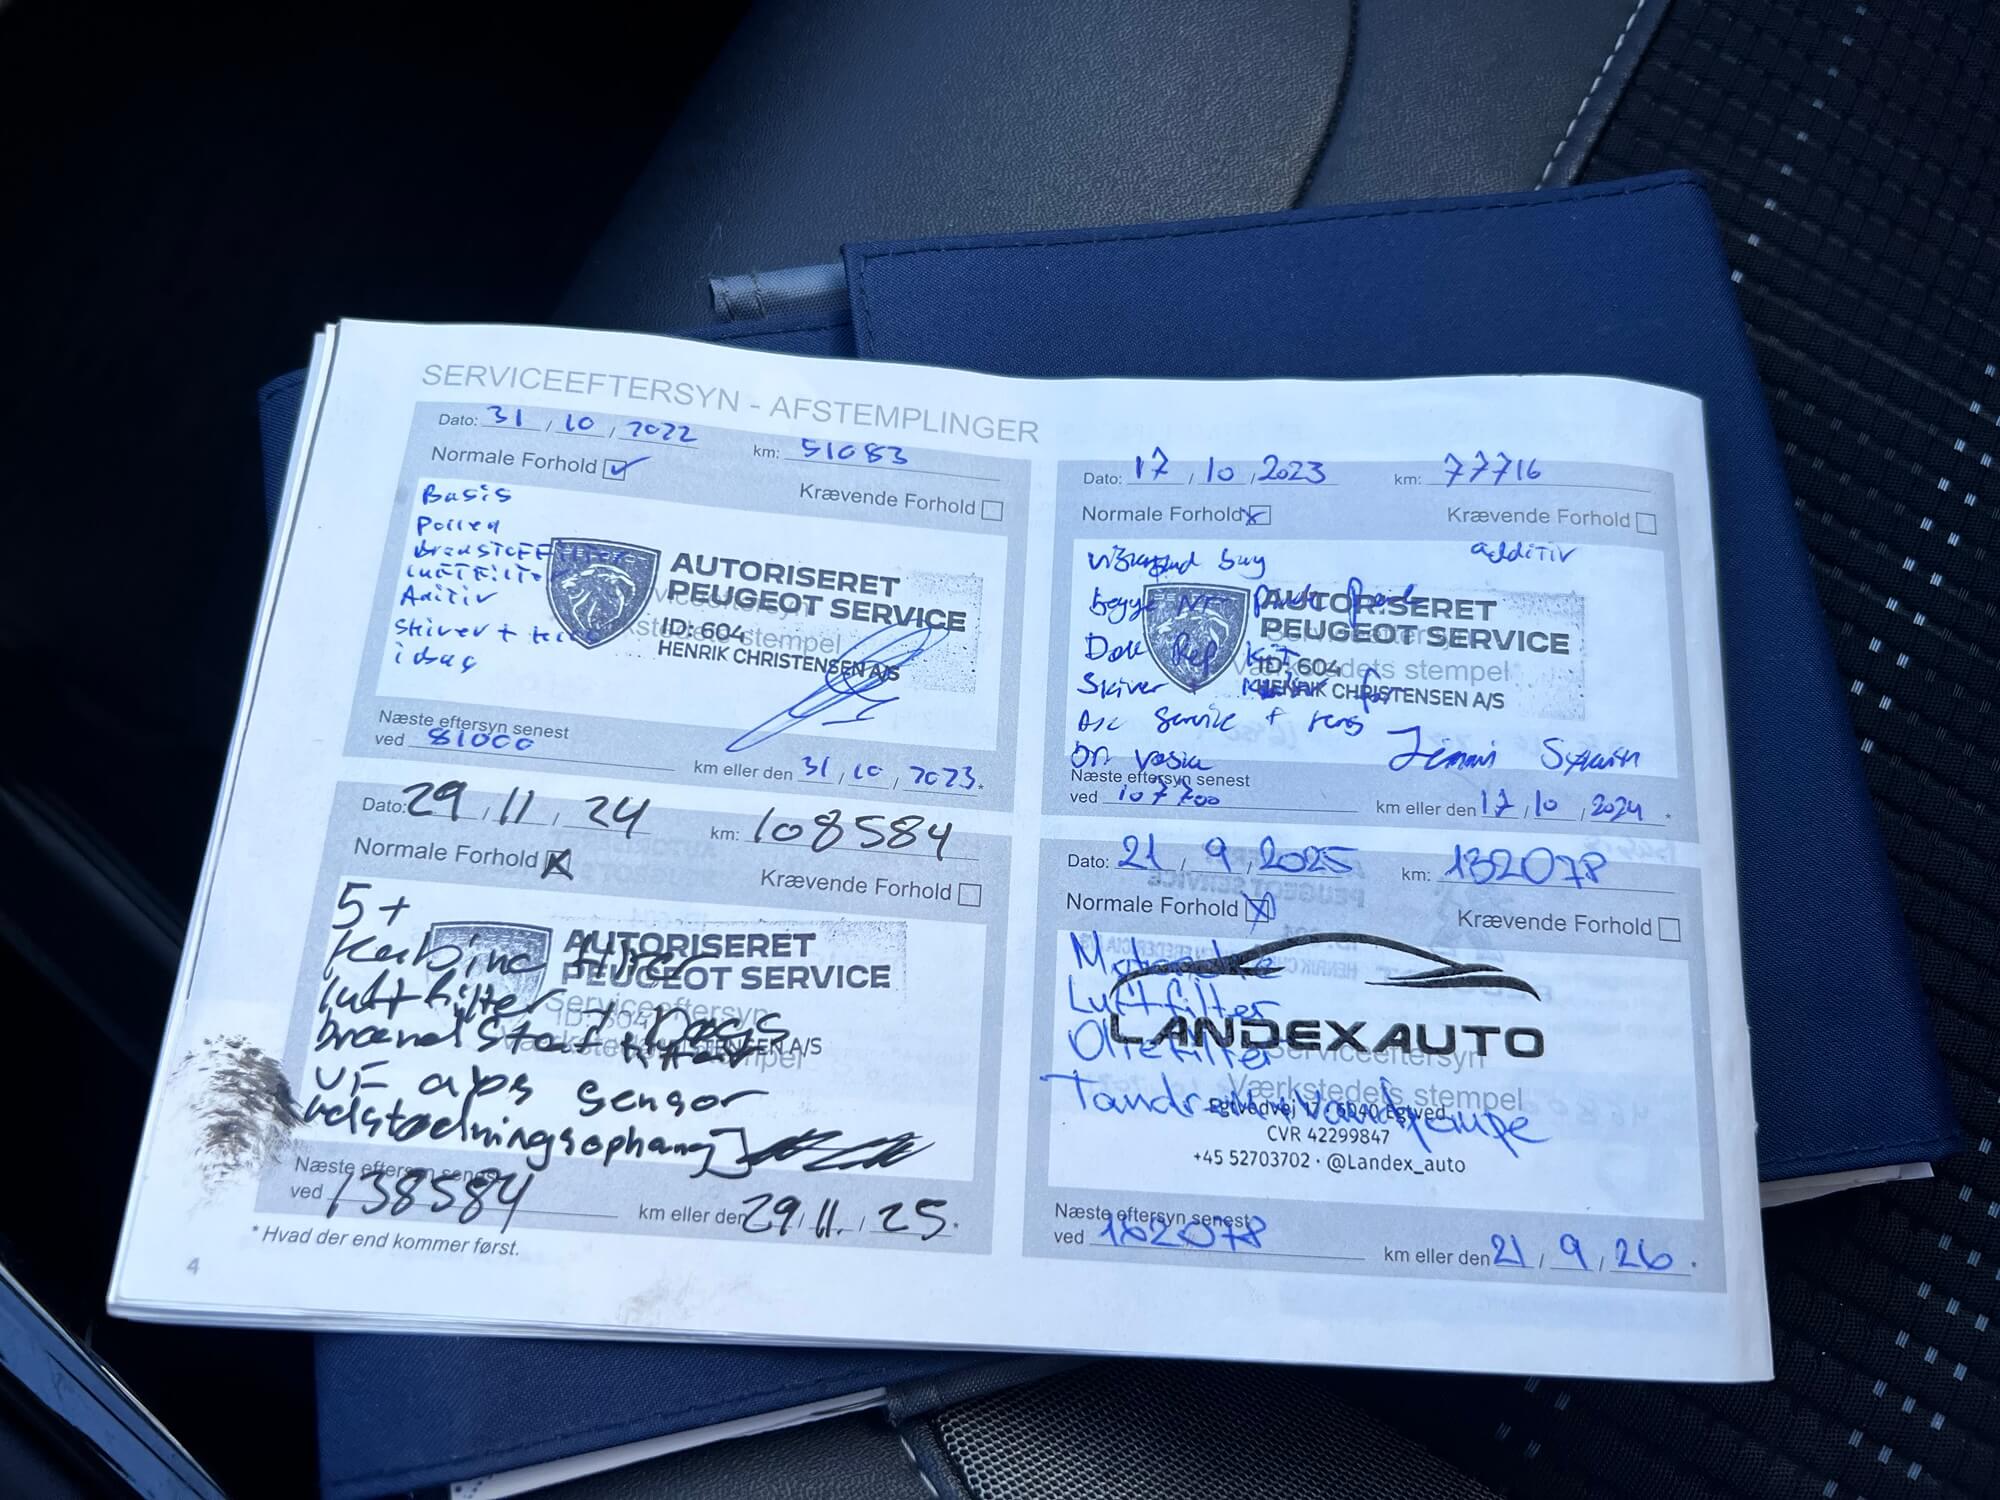 SERVICEEFTERSYN - AFSTEMPLINGER
Dato: 31 / 10 / 2022 km: 51083
Normale Forhold
Krævende Forhold
Basis
Pollen
Brændstoffilter
Luftfilter
Aditiv
Skiver +
i bag
AUTORISERET
PEUGEOT SERVICE
ID: 604
HENRIK CHRISTENSEN A/S
Næste eftersyn senest
ved 81000 km eller den 31 / 10 / 2023.*
Dato: 17 / 10 / 2023 km: 77716
Normale Forhold
Krævende Forhold
additiv
bag
begge
Rep Kit
Skiver + for
service + rens
AUTORISERET
PEUGEOT SERVICE
Værkstedets stempel
ID: 604
HENRIK CHRISTENSEN A/S
Næste eftersyn senest
ved 107700 km eller den 17 / 10 / 2024 *
Dato: 29 / 11 / 24 km: 108584
Normale Forhold
Krævende Forhold
5+
Kabine filter
luftfilter
brændstof filter
VF abs sensor
udstødningsophang
AUTORISERET
PEUGEOT SERVICE
Serviceeftersyn
Næste eftersyn senest
ved 138584 km eller den 29 / 11 / 25.*
* Hvad der end kommer først.
4
Dato: 21 / 9 / 2025 km: 132078
Normale Forhold
Krævende Forhold
Motorolie
Luftfilter
Oliefilter
Tandrem + Vandpumpe
LANDEXAUTO
Serviceeftersyn
Værkstedets stempel
Egtvedvej 17, 6040 Egtved
CVR 42299847
+45 52703702 · @Landex_auto
Næste eftersyn senest
ved 162078 km eller den 21 / 9 / 26 *